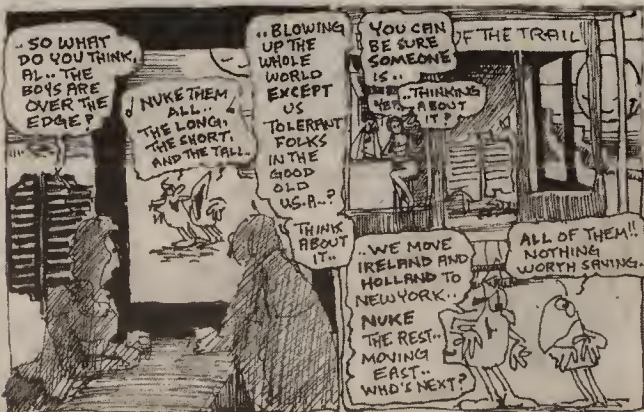 ..SO WHAT
DO YOU THINK,
AL.. THE
BOYS ARE
OVER THE
EDGE?
♪ NUKE THEM
ALL..
THE LONG,
THE SHORT,
AND THE TALL..
..BLOWING
UP THE
WHOLE
WORLD
EXCEPT
US
TOLERANT
FOLKS
IN THE
GOOD
OLD
U.S.A..?
THINK
ABOUT
IT..
YOU CAN
BE SURE
SOMEONE
IS..
..THINKING
ABOUT
IT?
OF THE TRAIL
..WE MOVE
IRELAND AND
HOLLAND TO
NEW YORK..
NUKE
THE REST..
MOVING
EAST..
WHO'S NEXT?
ALL OF THEM!!
NOTHING
WORTH SAVING.